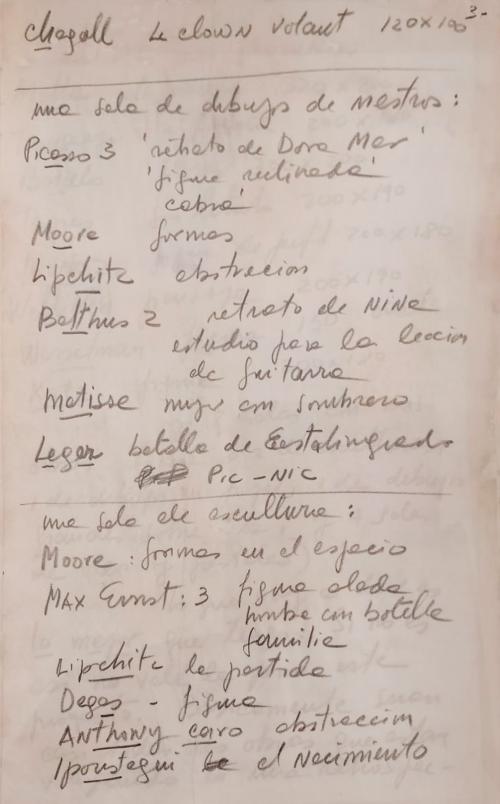 Chagall Le clown volant 120x100 3-
una sala de dibujos de mestros:
Picasso 3 'retrato de Dora Mar'
'figura reclinada'
cabra'
Moore formas
Lipchitz abstracion
Balthus 2 retrato de NiNa
estudio para la leccion
de guitarra
Matisse mujer con sombrero
Leger batalla de Estalingrado
PIC-NIC
una sala de escultura:
Moore: formas en el espacio
MAX Ernst: 3 figura alada
hombre con botella
familia
Lipchitz la partida
Degas - figura
ANthony caro abstraccion
Ipoustegui el Nacimiento